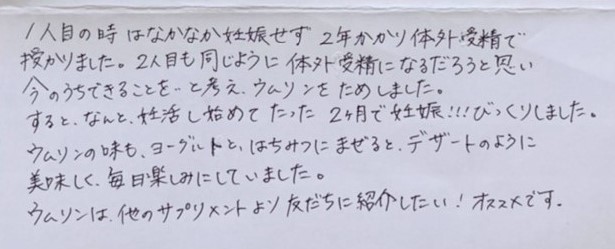 1人目の時はなかなか妊娠せず 2年かかり体外受精で
授かりました。2人目も同じように体外受精になるだろうと思い
今のうちできることを…と考え、ウムリンをためしました。
すると、なんと、妊活し始めてたった 2ヶ月で妊娠!!!びっくりしました。
ウムリンの味も、ヨーグルトと、はちみつにまぜると、デザートのように
美味しく、毎日楽しみにしていました。
ウムリンは、他のサプリメントより友だちに紹介したい!オススメです。